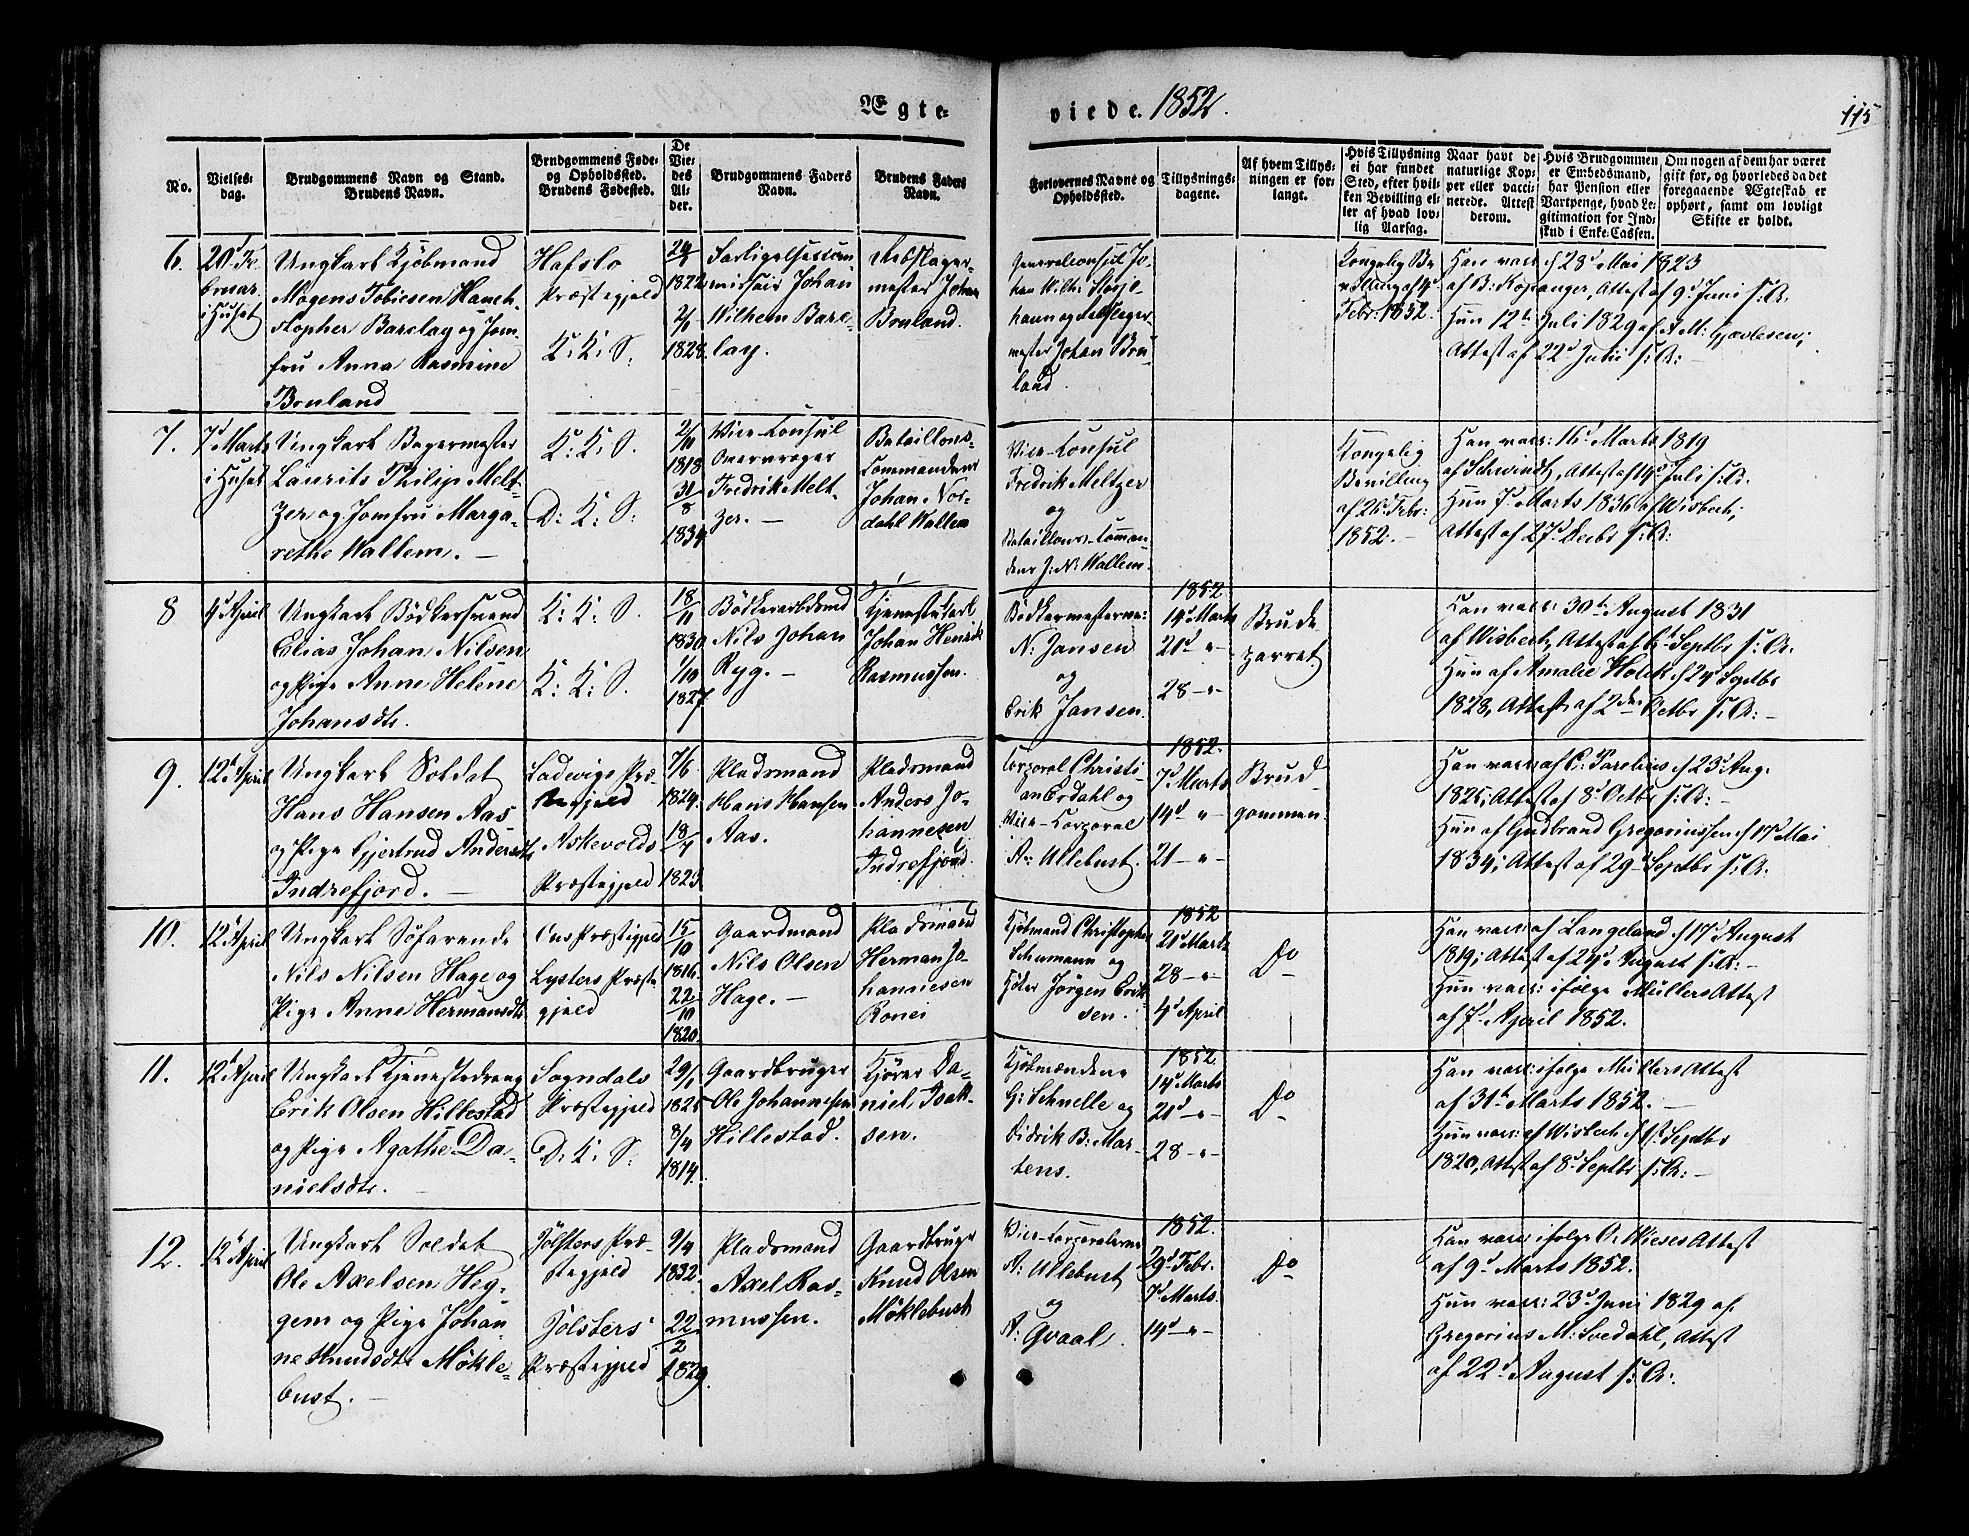 Ægte-
viede. 1852.
115
No.
Vielses-
dag.
Brudgommens Navn og Stand.
Brudens Navn.
Brudgommens Føde-
og Opholdssted.
Brudens Fødested.
De
Vie-
des
Al-
der.
Brudgommens Faders
Navn.
Brudens Faders
Navn.
Forlovernes Navne og
Opholdssted.
Tillysnings-
dagene.
Af hvem Tillys-
ningen er for-
langt.
Hvis Tillysning
ei har fundet
Sted, efter hvil-
ken Bevilling el-
ler af hvad lov-
lig Aarsag.
Naar havt de
naturlige Kop-
per eller vacci-
nerede. Attest
derom.
Hvis Brudgommen
er Embedsmand,
har Pension eller
Vartpenge, hvad Le-
gitimation for Ind-
skud i Enke-Cassen.
Om nogen af dem har været
gift for, og hvorledes da det
foregaaende Ægteskab er
ophørt, samt om lovligt
Skifte er holdt.
6.
20d Fe-
bruar
i Huset
Ungkarl Kjøbmand
Mogens Tobiesen
Barclay og Jom-
fru Anna Rasmine
Bruland
Hafslo
Præstegjeld
K: K: S.
1822
1828.
Johan
Wilhem Barc-
lay.
mester Johan
Bruland.
Generalconsul Jo-
han Wilh:
mester Johan Bru-
land.
Kongelig Be-
villing af 4d
Febr: 1852.
Han vacc: d 28d Mai 1823
Attest af 9d Juni s: A.
Hun 12te Juli 1829 af A. M:
Attest af 22d Julii s: A:
7.
7d Marts
i Huset
Ungkarl Bagermester
Laurits Philip Melt-
zer og Jomfru Marga-
rethe Wallem. —
K: K: S.
D: K: S:
1818
31/8
1834
Vice-Consul
Fredrik Melt-
zer. —
Batallions-
Commandeur
Johan Nor-
dahl Wallem
Vice-Consul
Fredrik Meltzer
og
Batallions-Comman-
deur J: N: Wallem.
Kongelig
Bevilling
af 26d Febr:
1852. —
Han vacc: 16d Marts 1819
af Schwindt, Attest af 14d Juli s: A.
Hun 7d Marts 1836 af Wisbech;
Attest af 27d Decbr s: A:
8
4d April
Ungkarl Bødkersvend
Elias Johan Nilsen
og Pige Anne Helene
Johansdtr.
K: K: S.
K: K: S.
18/11
1830
1/10
1827
Bødkerarbdsmd
Nils Johan
Ryg. —
Tjenestekarl
Johan Henrik
Rasmussen.
Bødkermesterne:
N: Jansen
og
Erik Jansen.
1852
14d Marts
21d "
28 - " -
Brude
parret
Han vacc: 30te August 1831
af Wisbech, Attest af 6d Septbr s: A.
Hun af Amalie Holck d 24d Septbr
1828, Attest af 2den Octbr s: A: —
9.
12te April
Ungkarl Soldat
Hans Hansen Aas
og Pige Gjertrud Andersdtr
Indrefjord. —
Ladvigs Præ-
stegjeld
Askevolds
Præstegjeld
7/6
1829.
18/7
1823
Pladsmand
Hans Hansen
Aas.
Pladsmand
Anders Jo-
hannesen
Indrefjord.
Corporal Christi-
an Erdahl og
Vice-Corporal
A: Ullebust.
1852.
7d Marts
14d "
21 - " -
Brud
gommen
Han vacc: af C: d 23d Aug.
Attest af 8d Octbr s: A: —
Hun af Gudbrand Gregoriussen d 17d Mai
1834; Attest af 29d Septbr s: A.
10.
12te April
Ungkarl Søfarende
Nils Nilsen Hage og
Pige Anne Hermansdtr
Præstegjeld
Lysters Præste-
gjeld
15/10
1816.
22/10
1820.
Gaardmand
Nils Olsen
Hage. —
Pladsmand
Herman Jo-
hannesen
Ronei
Kjøbmand Christopher
Schumann og
Jørgen Erik-
sen.
1852
21d Marts
28 - " -
4d April
Do
Han vacc: af Langeland d 17d August
1819; Attest af 24d August s: A: —
Hun vacc: ifølge Müllers Attest
af 7d April 1852.
11.
12te April
Ungkarl Tjenestedreng
Erik Olsen Hillestad
og Pige Agathe Da-
nielsdtr. —
Sogndals
Præstegjeld
D: K: S:
29/1
1825
8/4
1814.
Gaardbruger
Ole Johannesen
Hillestad.
Kjører Da-
niel Isak-
sen.
Kjøbmændene
G: Schnelle og
Didrik B: Mar-
tens.
1852.
14d Marts
21d - " -
28 - " -
Do
Han vacc: ifølge Müllers Attest
af 31te Marts 1852. —
Hun vacc: af Wisbech d 1st Septbr
1820, Attest af 8d Septbr s: A: —
12.
12te April
Ungkarl Soldat
Ole Axelsen Heg-
gem og Pige Johan-
ne Knudsdtr Møkle-
bust. —
Jølsters Præ-
stegjeld
Jølsters
Præstegjeld
9/4
1832.
22/2
1829.
Pladsmand
Axel Ras-
mussen.
Gaardbruger
Knud Olsen
Møklebust
Vice-Corporalerne
A: Ullebust
og
A: Qvaal.
1852.
29d Febr.
7d Marts.
14d - " -
Do
Han vacc: ifølge O: Wieses Attest
af 9d Marts 1852.
Hun vacc: 23d Juni 1829 af
Gregorius M: Svedahl, Attest
af 22d August s: A: